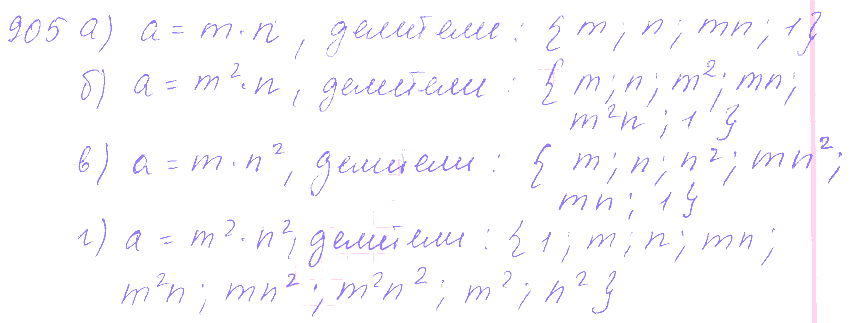 905 а) a = m · n, делители: {m; n; mn; 1}
б) a = m² · n, делители: {m; n; m²; mn;
m²n; 1}
в) a = m · n², делители: {m; n; n²; mn²;
mn; 1}
г) a = m² · n², делители: {1; m; n; mn;
m²n; mn²; m²n²; m²; n²}